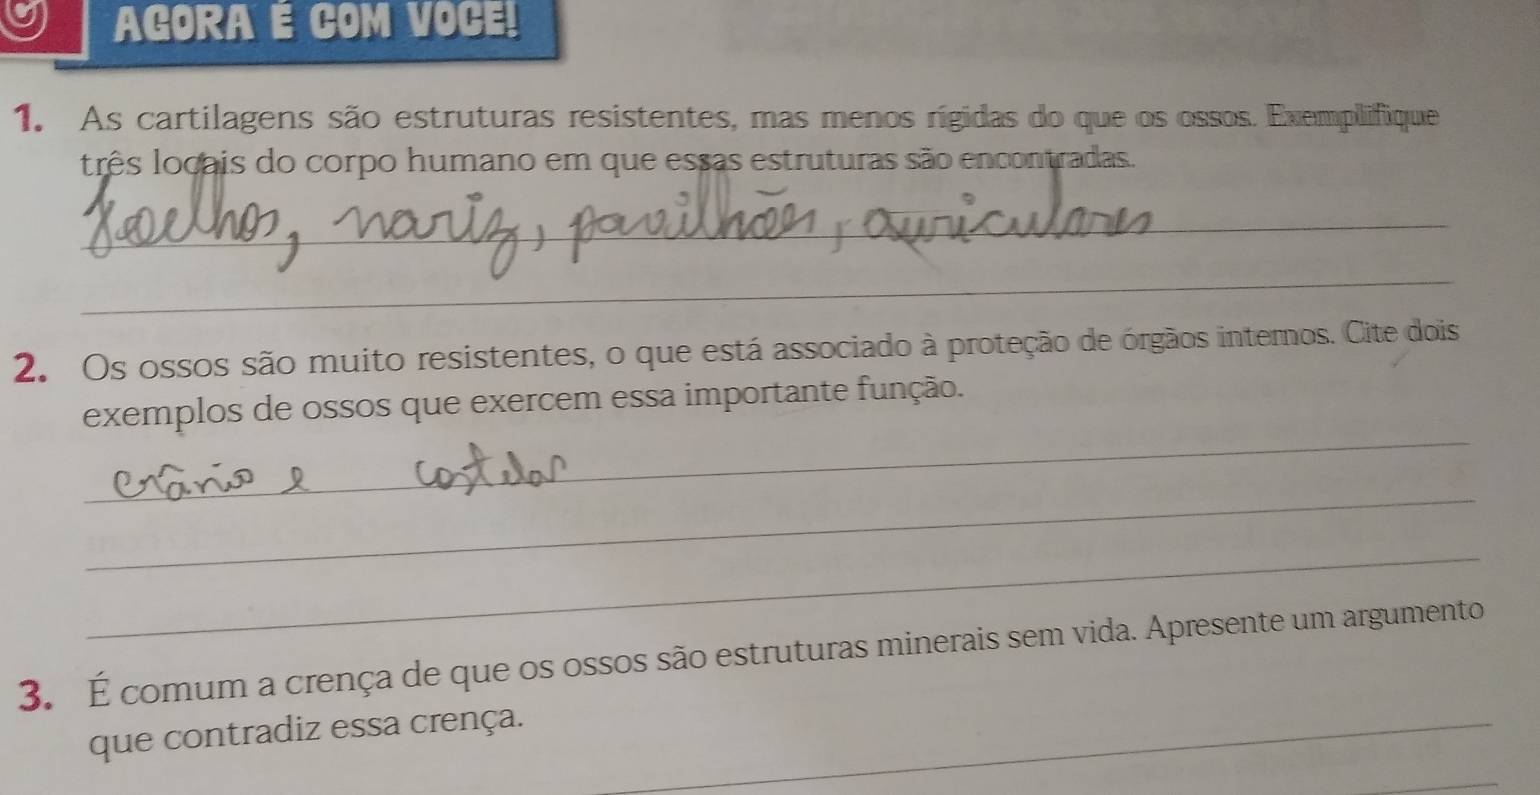 AGORA É COM VOCÊ!
1. As cartilagens são estruturas resistentes, mas menos rígidas do que os ossos. Exemplifique
três locais do corpo humano em que essas estruturas são encontradas.
Joelhos, nariz, pavilhões, auriculares
2. Os ossos são muito resistentes, o que está associado à proteção de órgãos internos. Cite dois
exemplos de ossos que exercem essa importante função.
crânio e costelas
3. É comum a crença de que os ossos são estruturas minerais sem vida. Apresente um argumento
que contradiz essa crença.